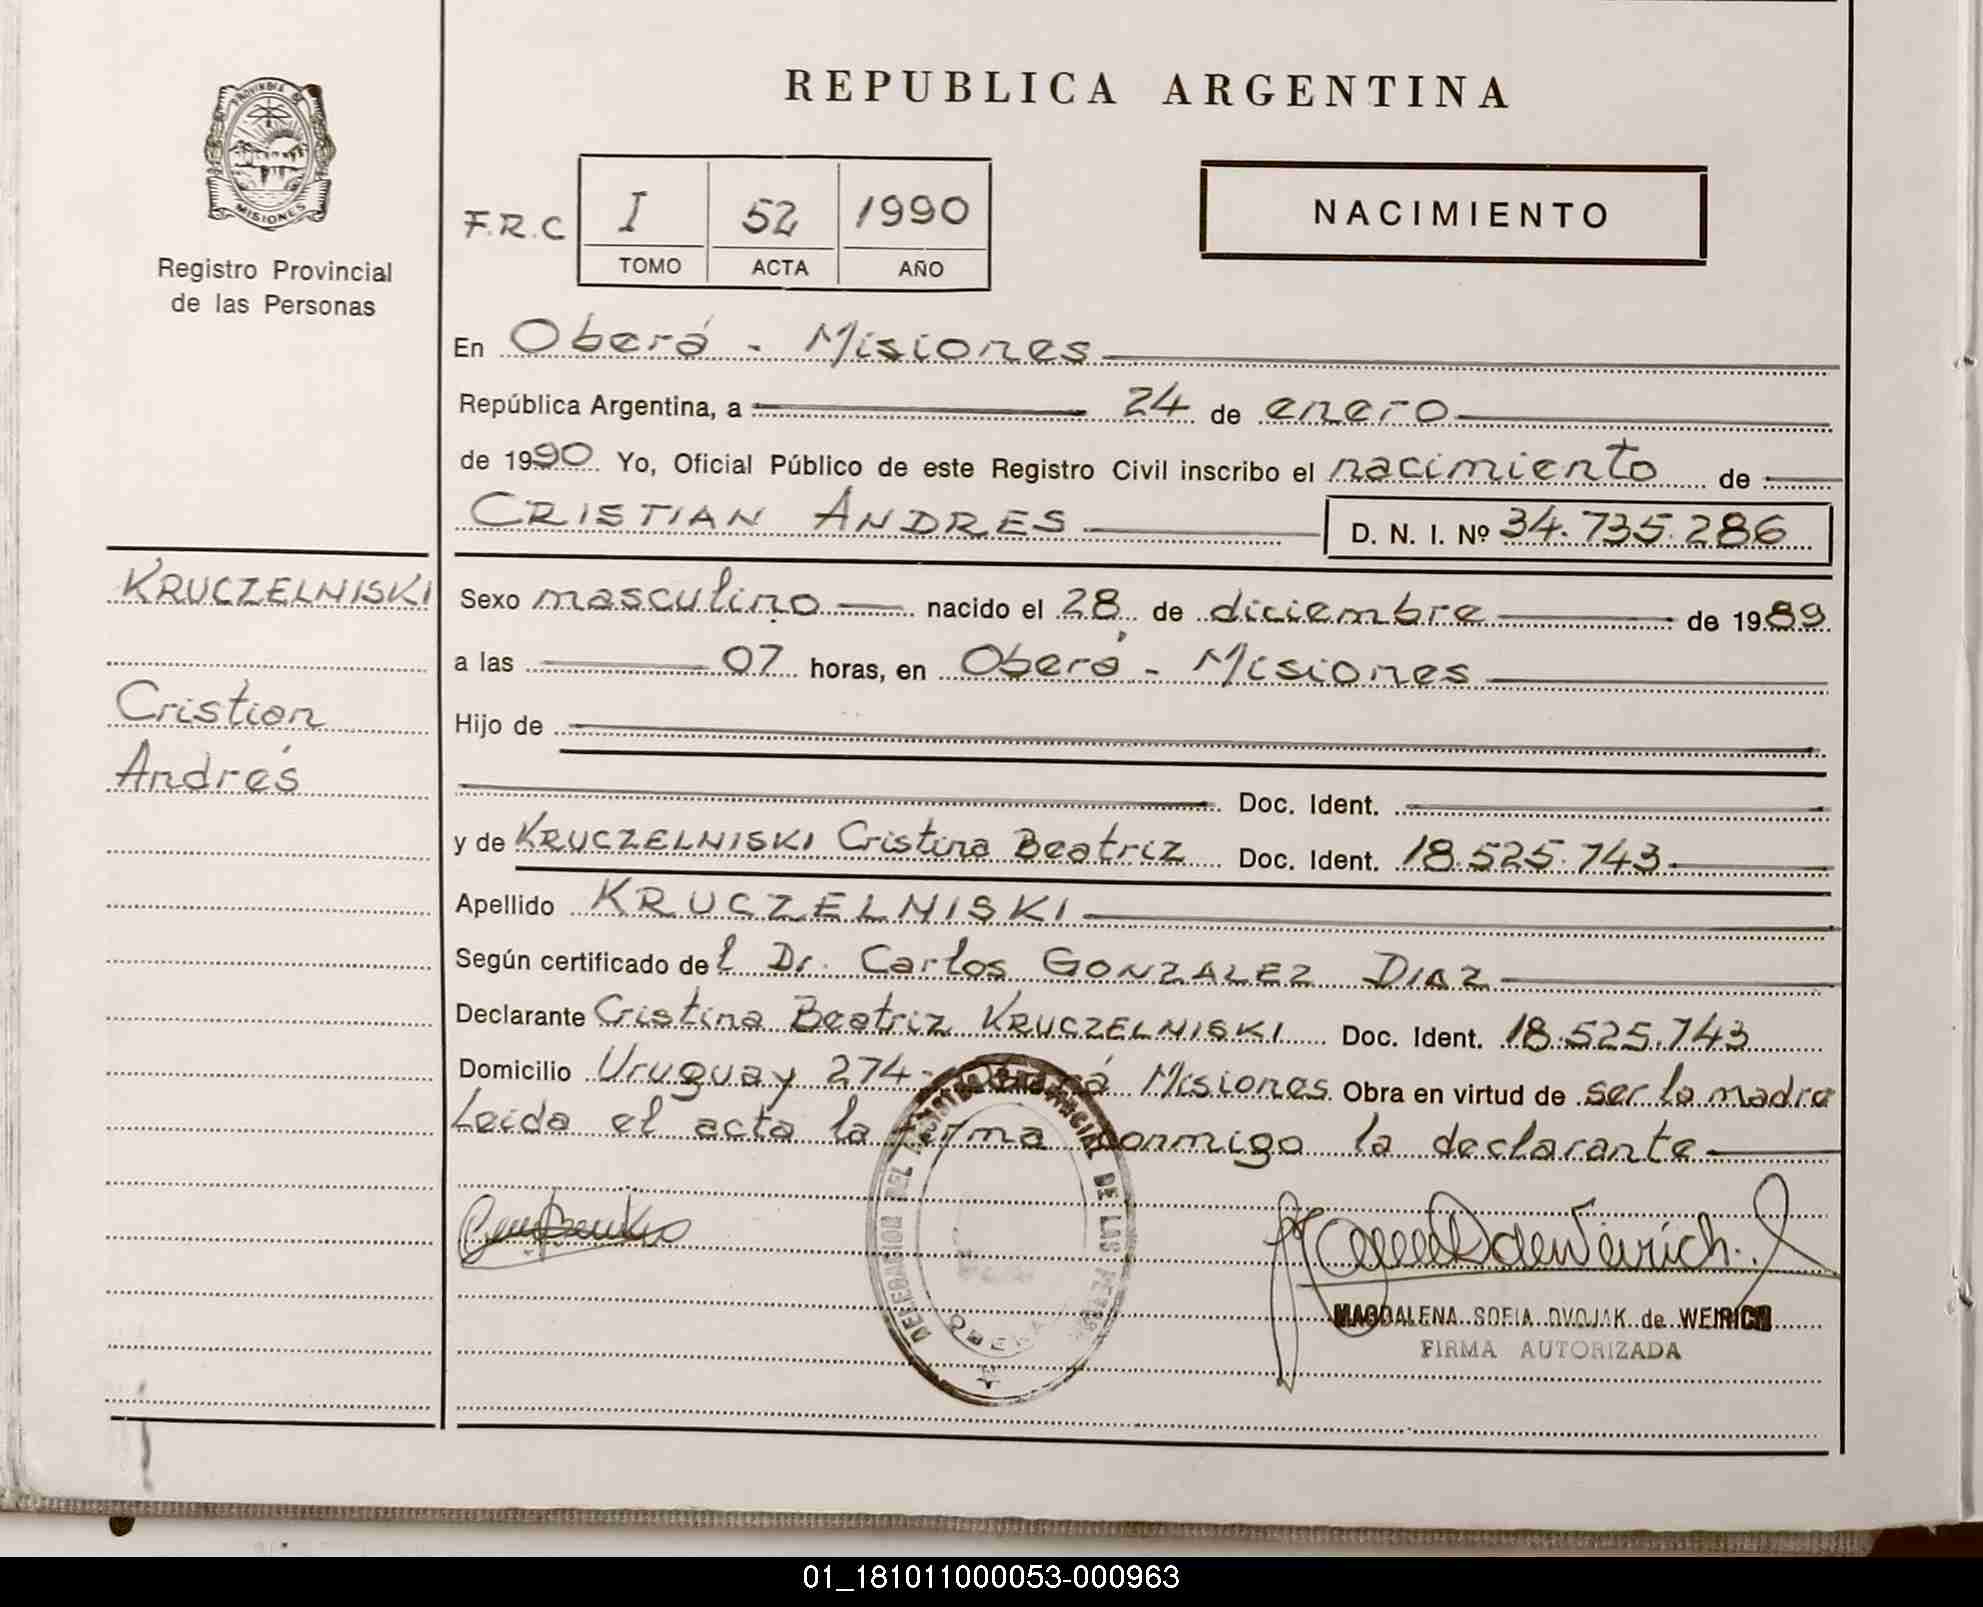 PROVINCIA DE
MISIONES
Registro Provincial
de las Personas
REPUBLICA ARGENTINA
NACIMIENTO
F.R.C I 52 1990
TOMO ACTA AÑO
En Oberá - Misiones
República Argentina, a 24 de enero
de 1990 Yo, Oficial Público de este Registro Civil inscribo el nacimiento de
CRISTIAN ANDRES D. N. I. Nº 34.735.286
KRUCZELNISKI
Cristian
Andrés
Sexo masculino nacido el 28 de diciembre de 1989
a las 07 horas, en Oberá - Misiones
Hijo de
Doc. Ident.
y de KRUCZELNISKI Cristina Beatriz Doc. Ident. 18.525.743
Apellido KRUCZELNISKI
Según certificado del Dr. Carlos GONZALEZ DIAZ
Declarante Cristina Beatriz KRUCZELNISKI Doc. Ident. 18.525.743
Domicilio Uruguay 274 - Oberá Misiones Obra en virtud de ser la madre
Leida el acta la firma conmigo la declarante
DELEGACION DEL REGISTRO PROVINCIAL DE LAS
OBERA
MAGDALENA SOFIA DVOJAK de WEIRICH
FIRMA AUTORIZADA
01_181011000053-000963